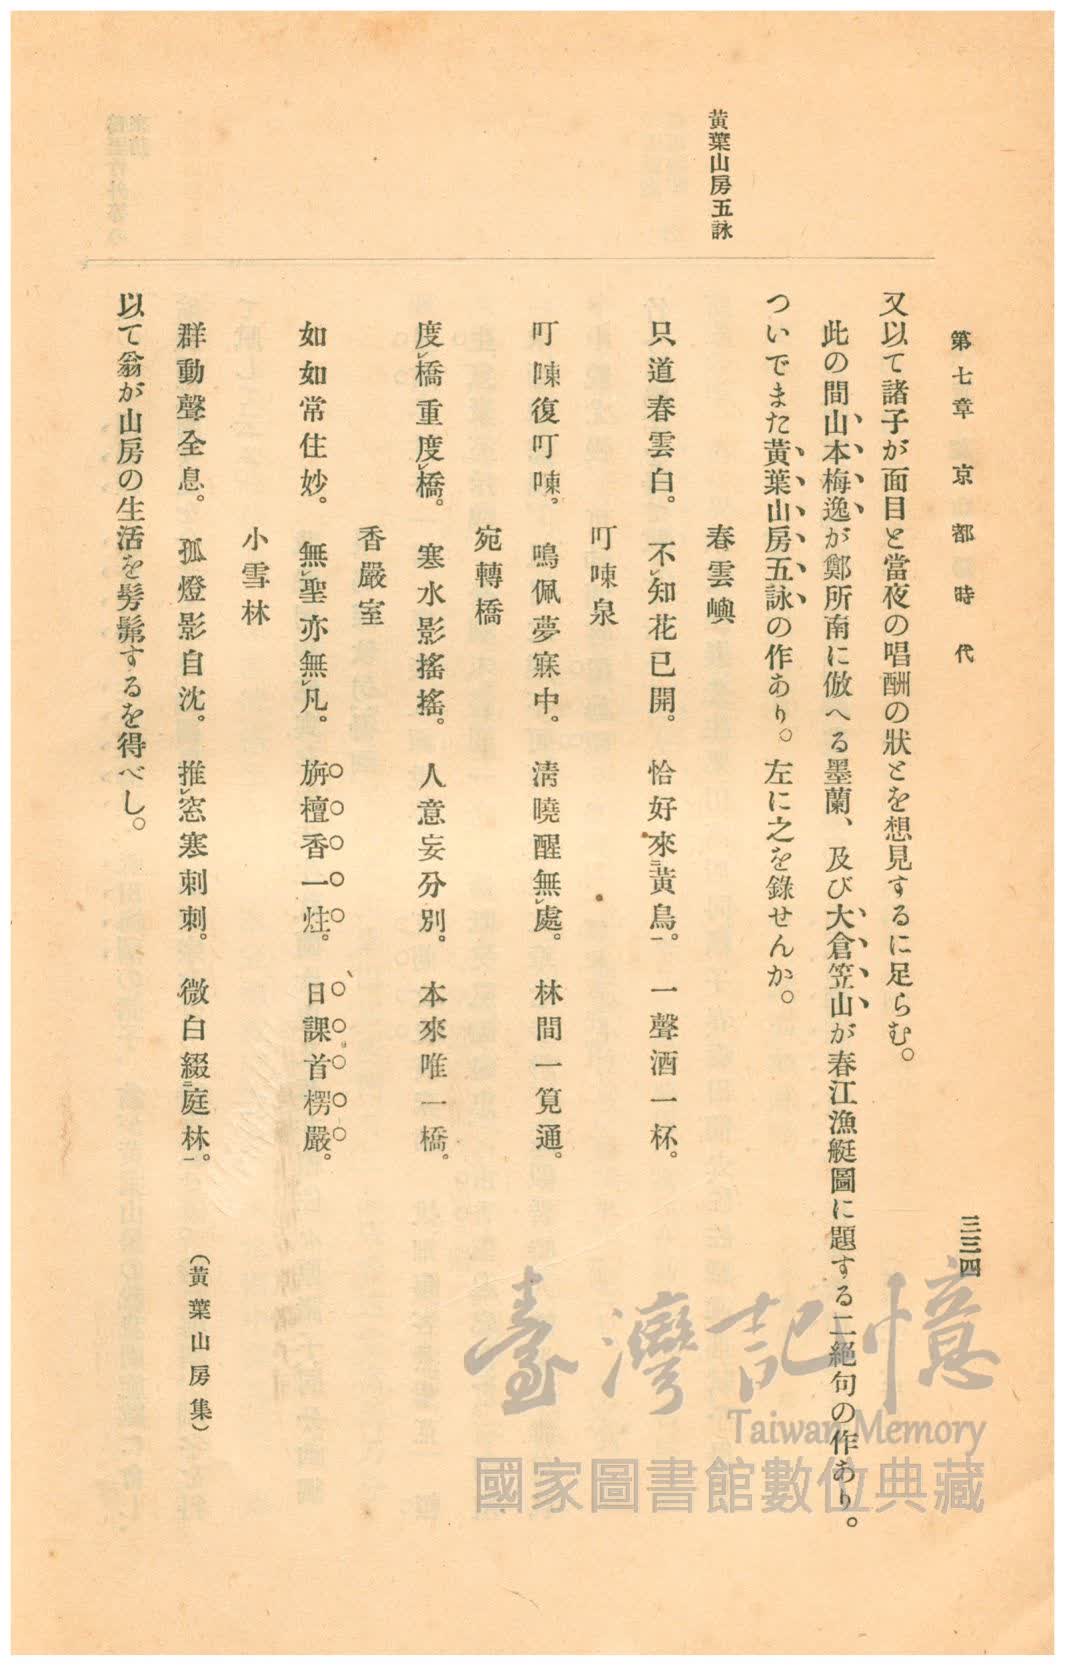 第七章 京都時代
三三四
黃葉山房五詠
又以て諸子が面目と當夜の唱酬の狀とを想見するに足らむ。
此の間山本梅逸が鄭所南に倣へる墨蘭、及び大倉笠山が春江漁艇圖に題する二絕句の作あり。
ついでまた黃葉山房五詠の作あり。左に之を錄せんか。
春雲嶼
只道春雲白。 不レ知花已開。 恰好來二黃鳥一。 一聲酒一杯。
叮㖦泉
叮㖦復叮㖦。 鳴佩夢寐中。 淸曉醒無レ處。 林間一筧通。
宛轉橋
度レ橋重度レ橋。 寒水影搖搖。 人意妄分別。 本來唯一橋。
香嚴室
如如常住妙。 無レ聖亦無レ凡。 旃檀香一炷。 日課首楞嚴。
小雪林
群動聲全息。 孤燈影自沈。 推レ窓寒刺刺。 微白綴二庭林一。
（黃葉山房集）
以て翁が山房の生活を髣髴するを得べし。
臺灣記憶
Taiwan Memory
國家圖書館數位典藏